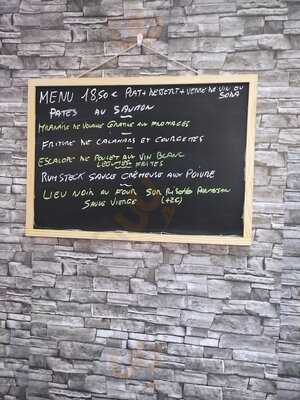 MENU 18,50 € PLAT + DESSERT + VERRE DE VIN OU
SODA
PATES AU SAUMON
MILANAISE DE VOLAILLE GRATINÉE AUX FROMAGES
FRITURE DE CALAMARS ET COURGETTES
ESCALOPE DE POULET AU VIN BLANC
LEGUMES FRITES
RUMSTECK SAUCE CRÉMEUSE AU POIVRE
LIEU NOIR AU FOUR SUR RISOTTO PARMESAN
SAUCE VIERGE (+2€)